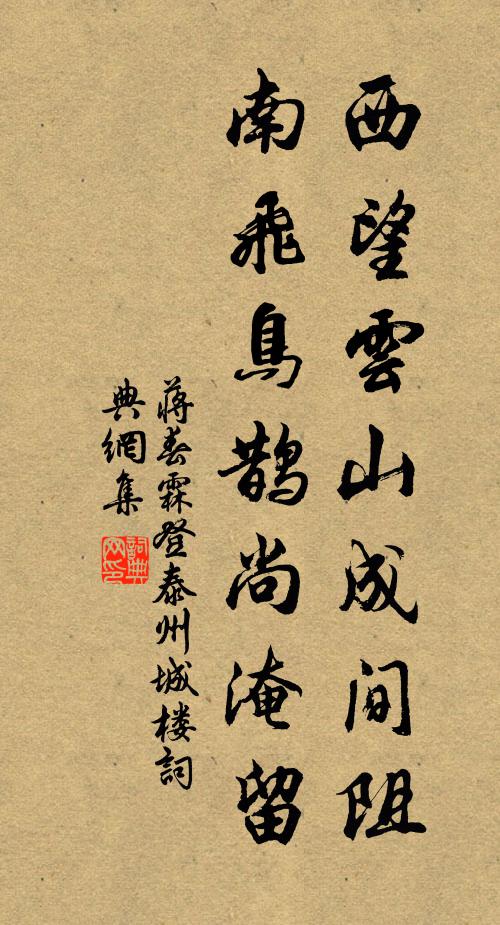 西望雲山成间阻
南飛鳥鹊尚淹留
蒋春霖登泰州城楼詞
典網集
詞典
网印